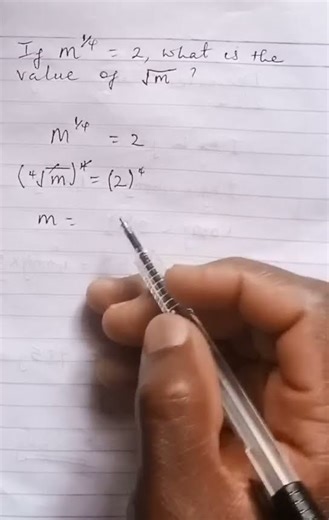 If m^1/4 = 2, what is the
value of √m ?
m^1/4 = 2
(⁴√m)⁴ = (2)⁴
m =